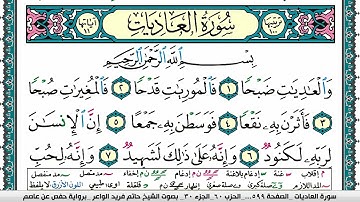 سُورَةُ الْعَادِيَاتِ
بِسْمِ اللَّهِ الرَّحْمَٰنِ الرَّحِيمِ
وَالْعَٰدِيَٰتِ ضَبْحًا ١ فَالْمُورِيَٰتِ قَدْحًا ٢ فَالْمُغِيرَٰتِ صُبْحًا
٣ فَأَثَرْنَ بِهِ نَقْعًا ٤ فَوَسَطْنَ بِهِ جَمْعًا ٥ إِنَّ الْإِنسَٰنَ
لِرَبِّهِ لَكَنُودٌ ٦ وَإِنَّهُ عَلَىٰ ذَٰلِكَ لَشَهِيدٌ ٧ وَإِنَّهُ لِحُبِّ
سورة العاديات . الصفحة ٥٩٩ . الحزب ٦٠ . الجزء ٣٠ . بصوت الشيخ حاتم فريد الواعر . برواية حفص عن عاصم